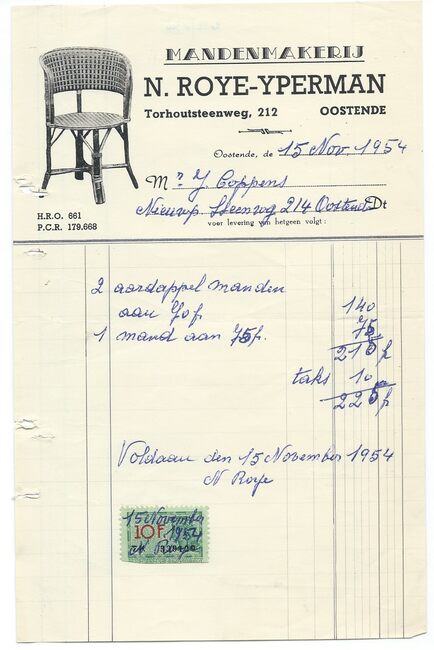 MANDENMAKERIJ
N. ROYE-YPERMAN
Torhoutsteenweg, 212 OOSTENDE
Oostende, de 15 Nov. 1954
Mr J Coppens
Nieuwp. Steenweg 214 Oostende Dt
voor levering van hetgeen volgt :
H.R.O. 661
P.C.R. 179.668
2 aardappel manden
aan 70 f. 140
1 mand aan 75 f. 75
215 f
taks 10
225 f
Voldaan den 15 November 1954
N Roye
15 November
10F. 1954
N Roye